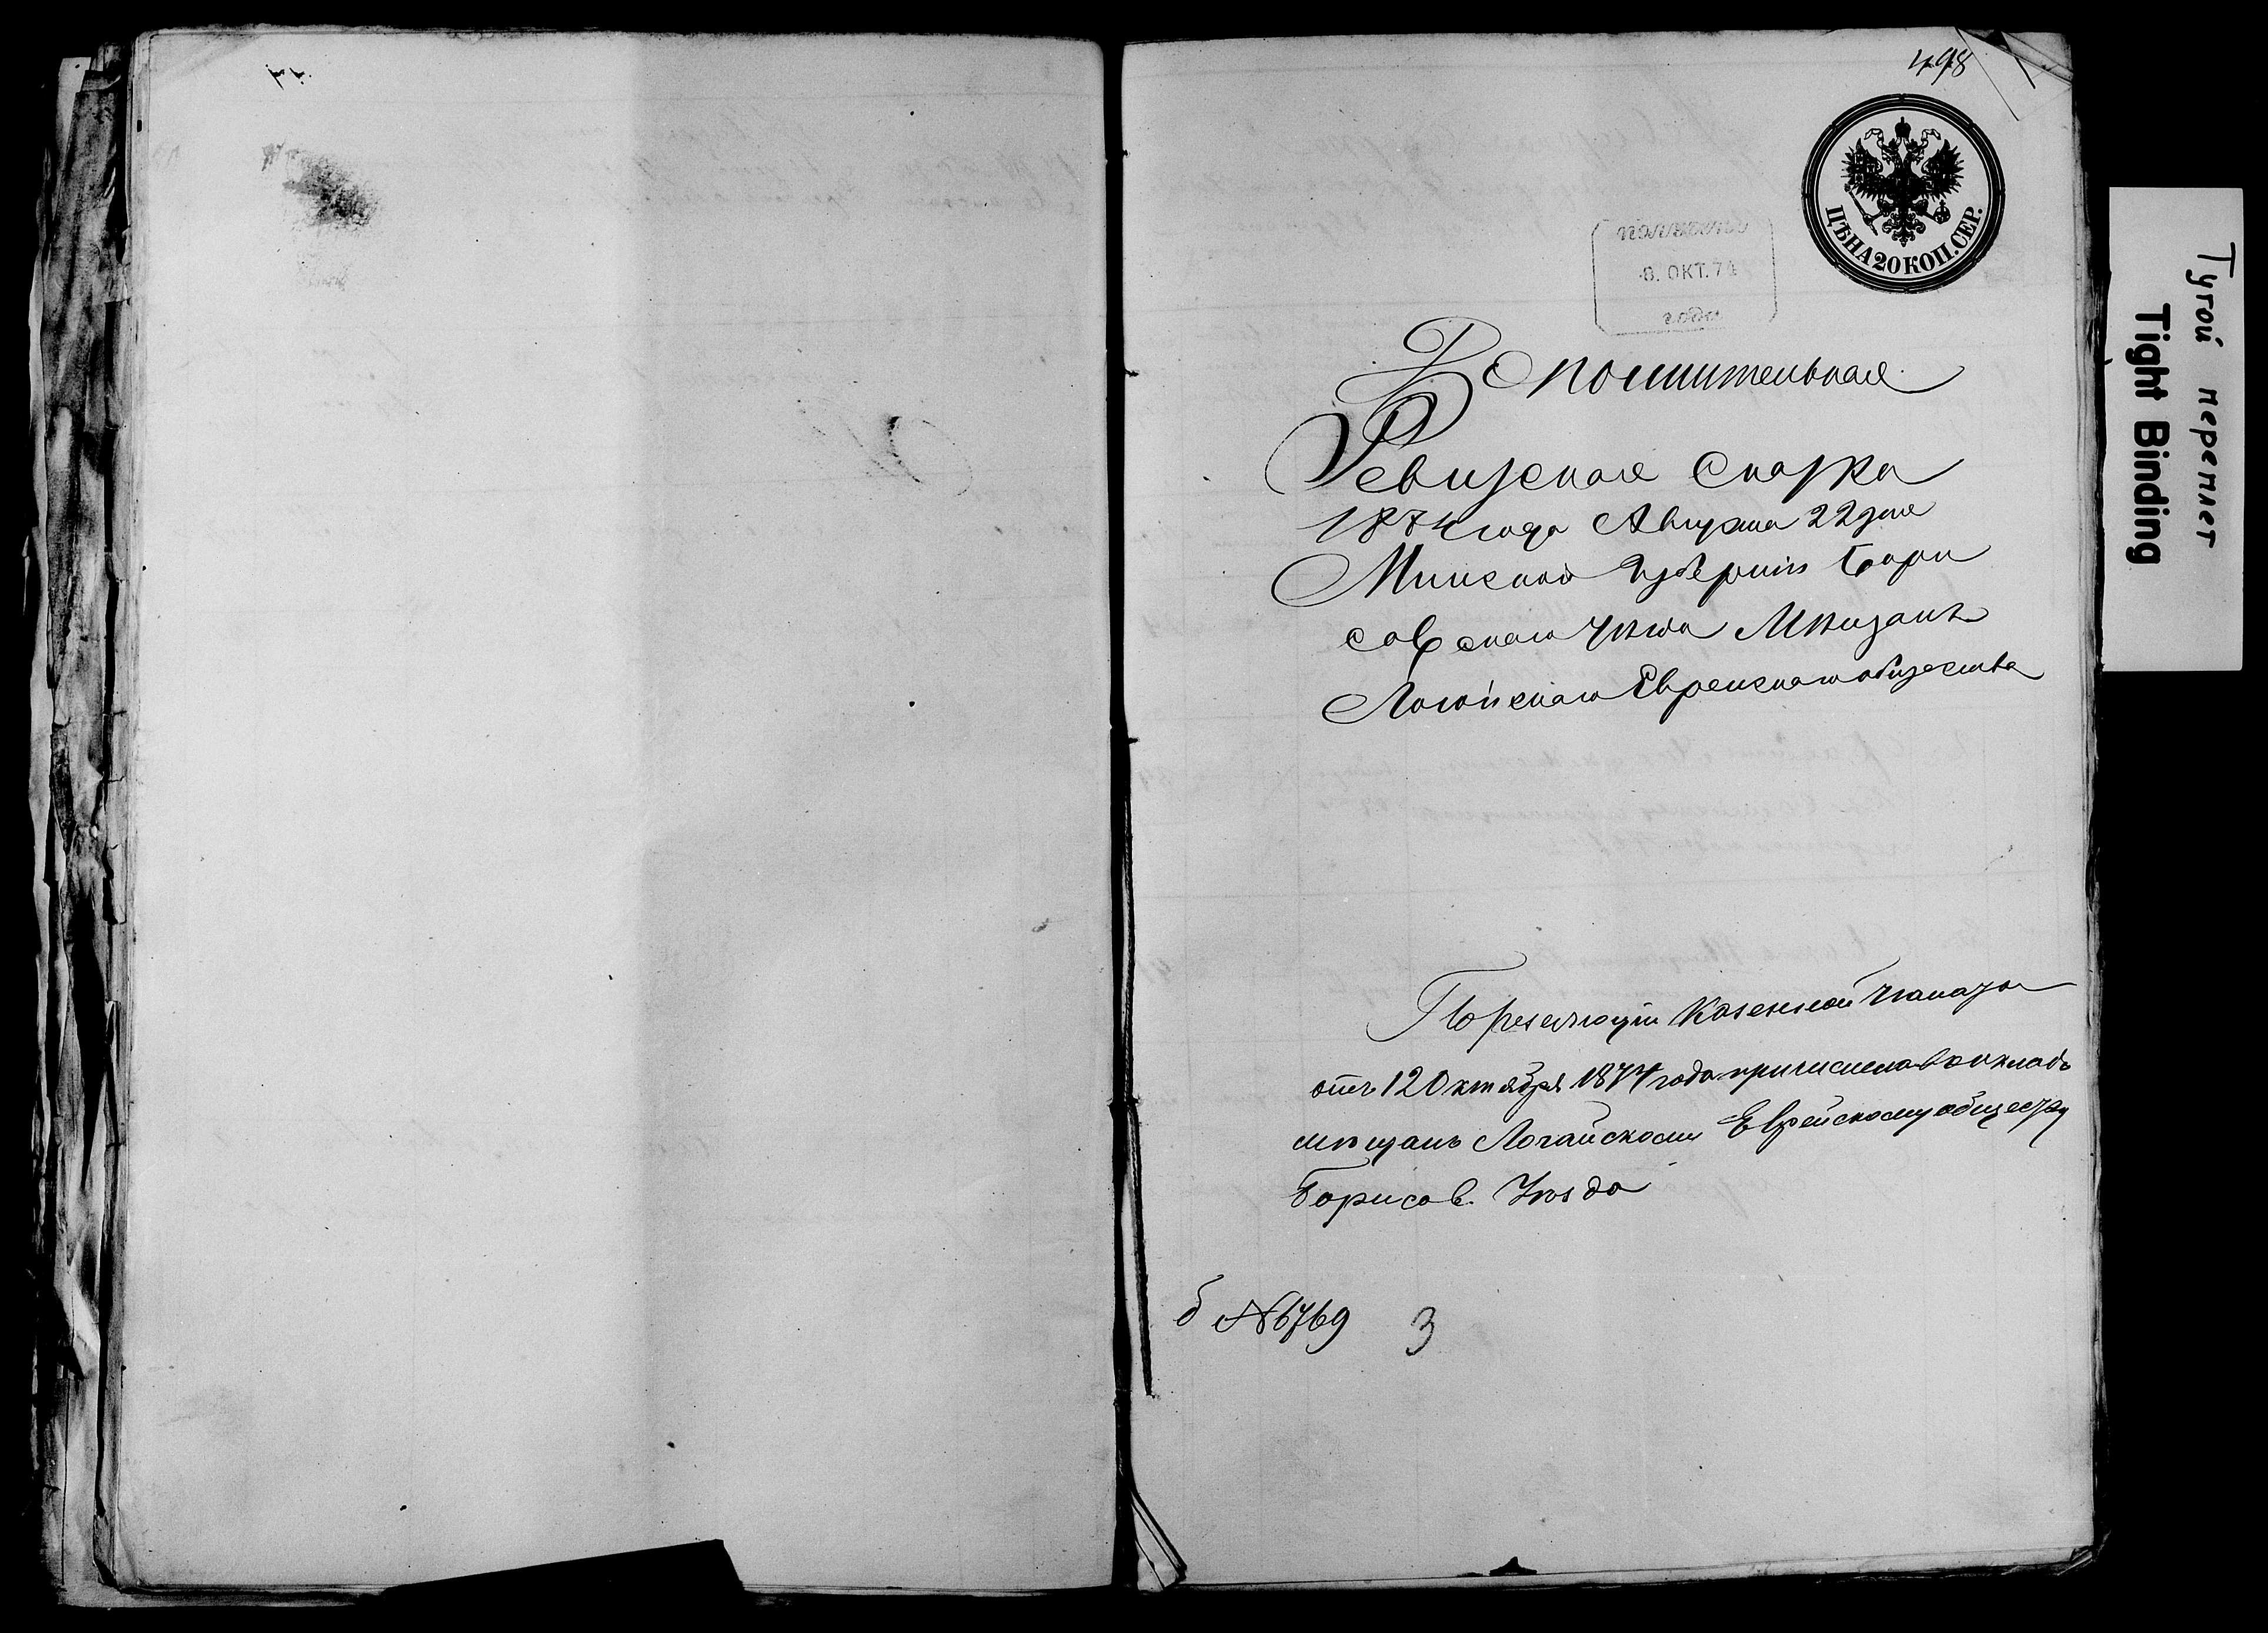 498
ЦѢНА 20 КОП. СЕР.
получено
8. ОКТ. 74
года
Дополнительная
Ревизская сказка
1874 года Августа 22 дня
Минской Губернiи Бори
совскаго Уѣзда Мѣщанъ
Логойскаго Еврейскаго общества
По резолюцiи Казенной Палаты
отъ 12 Октября 1874 года причислена в окладъ
мѣщанъ Логайскому Еврейскому обществу
Борисов. Уѣзда
б № 6769 3
Тугой переплет
Tight Binding